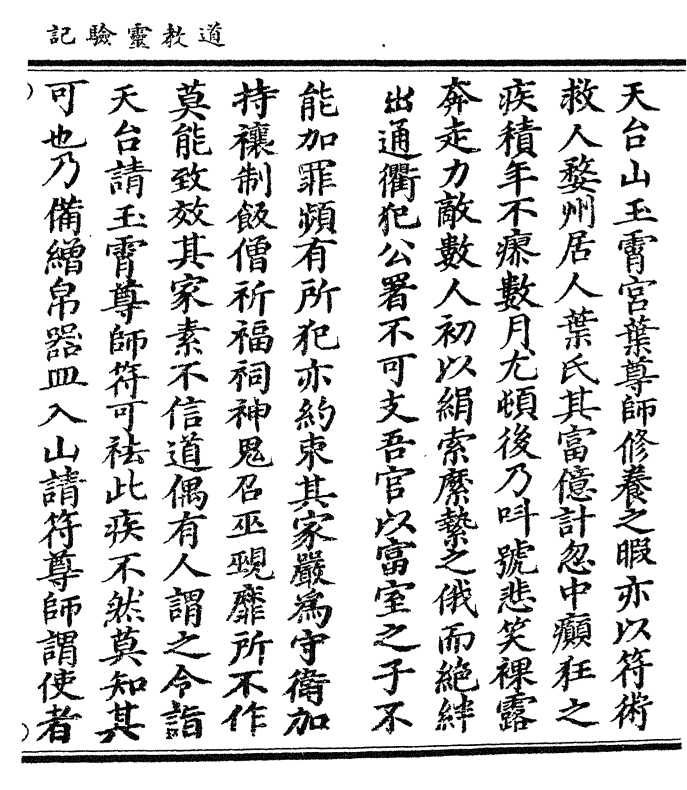 道教靈驗記
天台山玉霄宮葉尊師修養之暇亦以符術
救人婺州居人葉氏其富億計忽中癲狂之
疾積年不瘳數月尤頓後乃叫號悲笑裸露
奔走力敵數人初以絹索縻縶之俄而絶絆
出通衢犯公署不可支吾官以富室之子不
能加罪頻有所犯亦約束其家嚴為守衛加
持禳制飯僧祈福祠神鬼召巫覡靡所不作
莫能致效其家素不信道偶有人謂之令詣
天台請玉霄尊師符可祛此疾不然莫知其
可也乃備繒帛器皿入山請符尊師謂使者